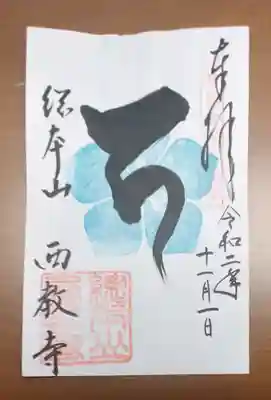 奉拝
令和二年
十一月一日
総本山
西教寺